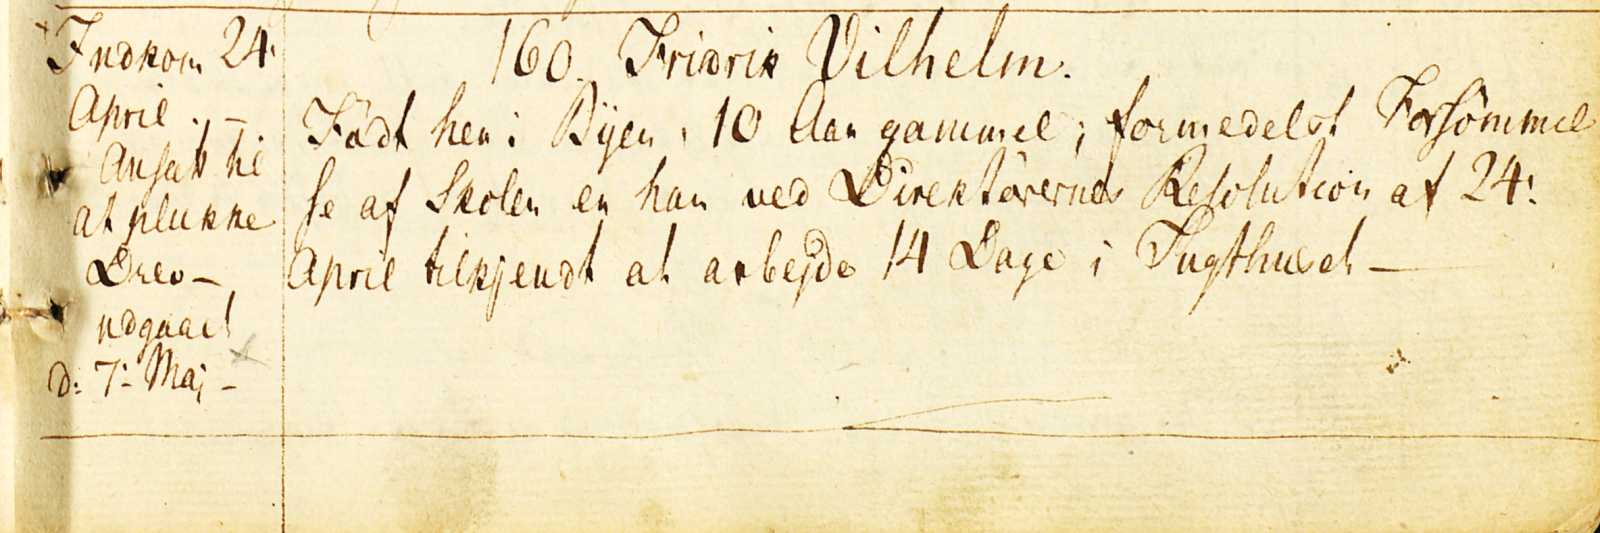 Indkom 24.
April. –
Ansat til
at plukke
Drev –
udgaaet
d: 7: Maj –
160. Fridrik Vilhelm.
Född her i Byen, 10 Aar gammel; formedelst Forsömmel
se af Skolen er han ved Direktörernes Resolution af 24:
April tilkjendt at arbejde 14 Dage i Tugthuset –